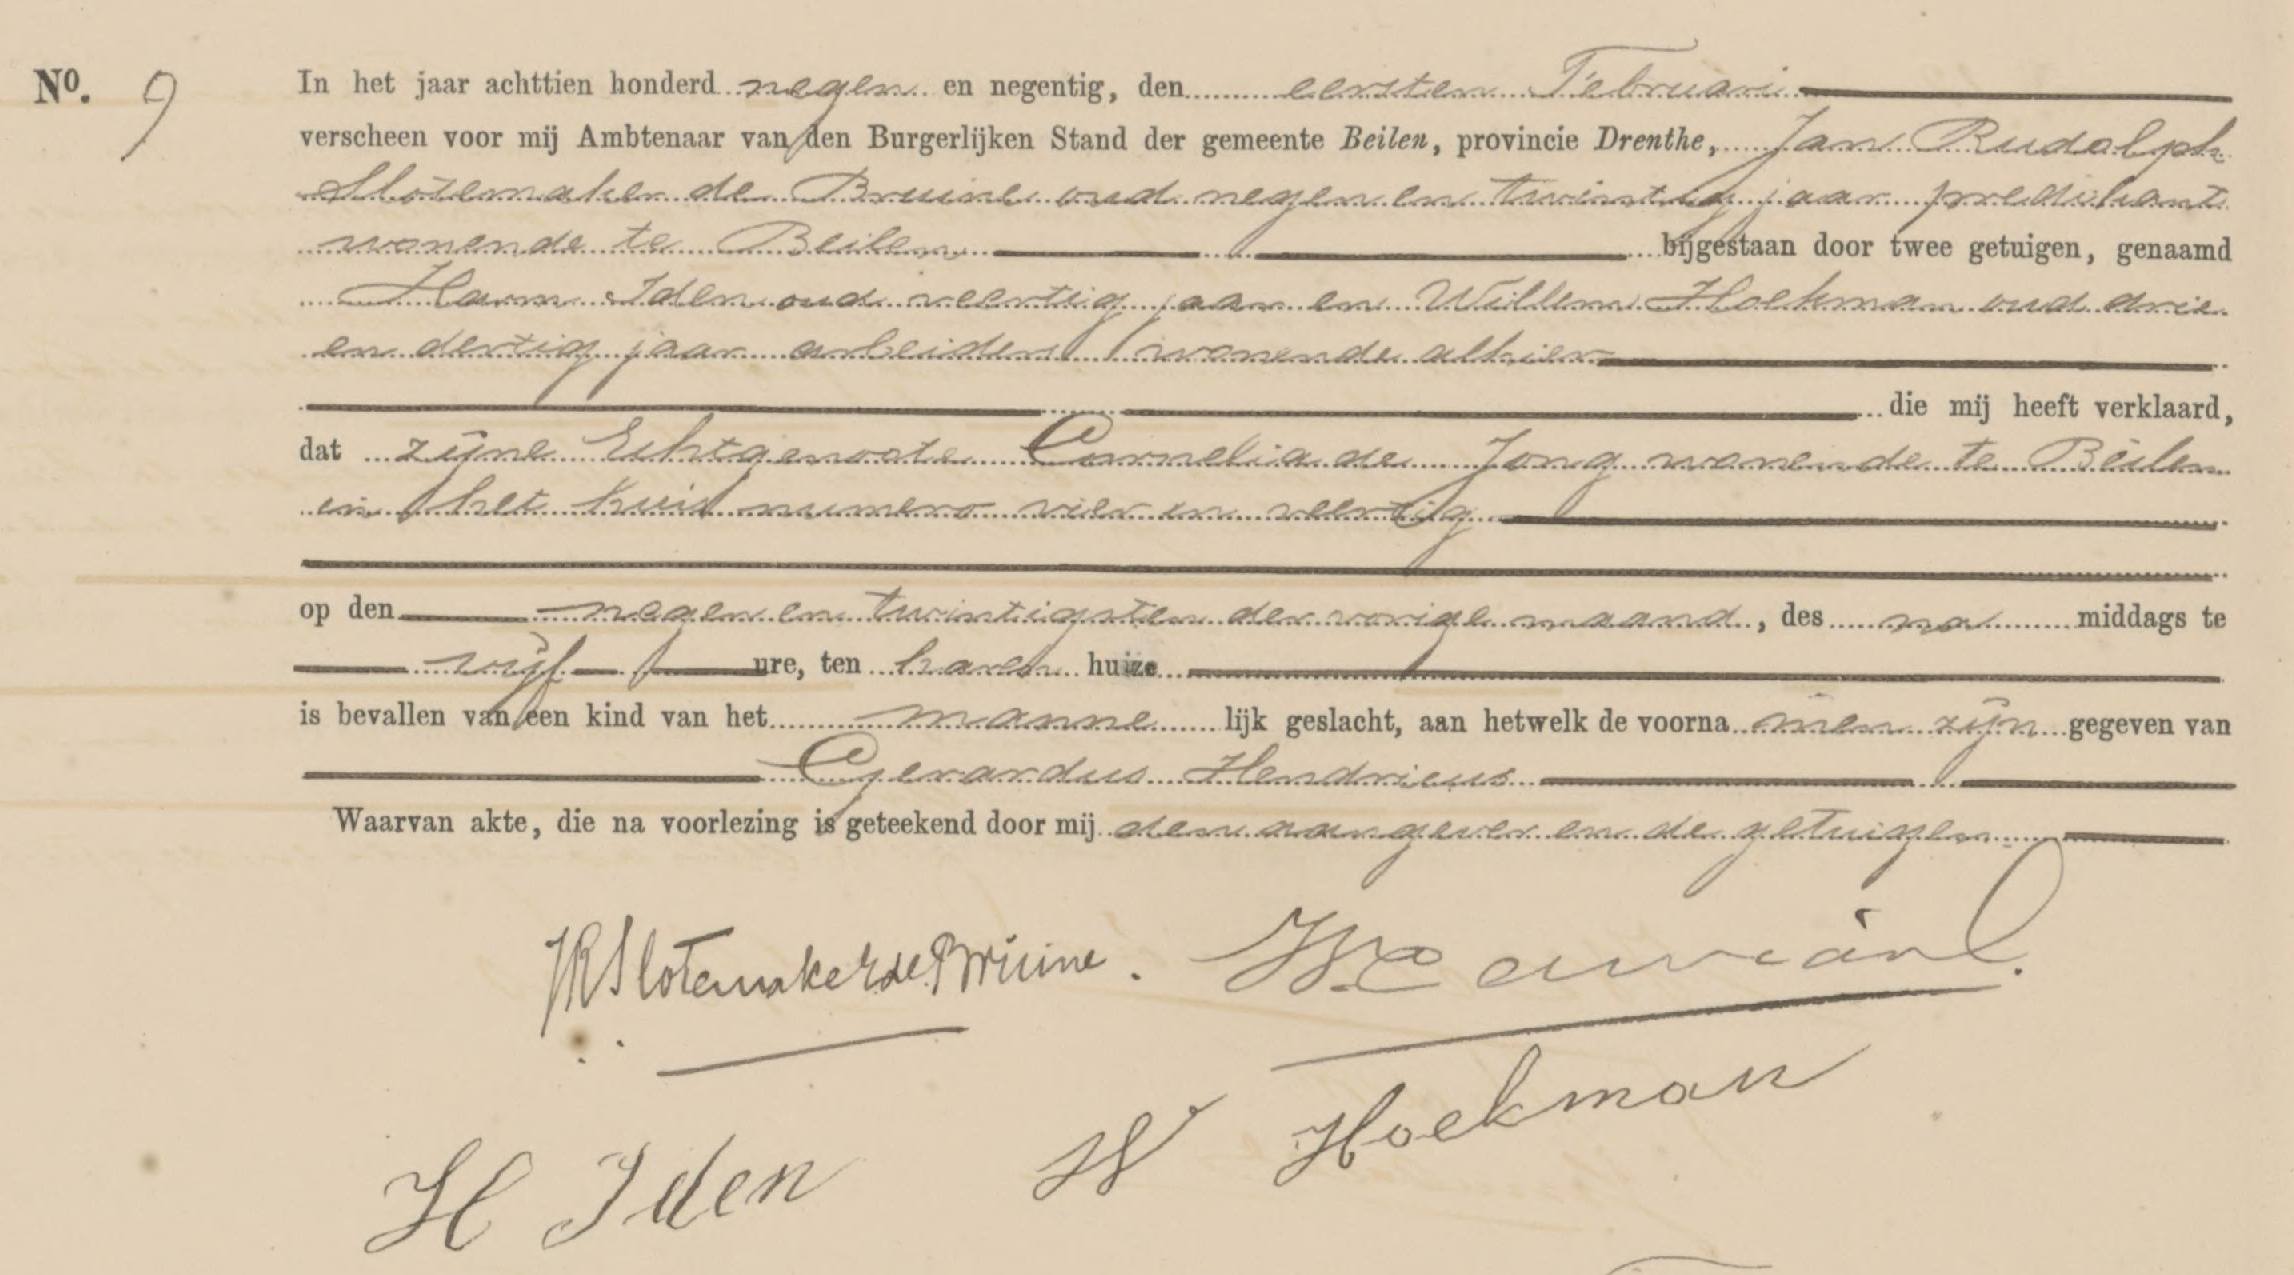 No. 9 In het jaar achttien honderd negen en negentig, den eersten Februari
verscheen voor mij Ambtenaar van den Burgerlijken Stand der gemeente Beilen, provincie Drenthe, Jan Rudolph
Slotemaker de Bruine oud negen en twintig jaar predikant
wonende te Beilen bijgestaan door twee getuigen, genaamd
Harm Iden oud veertig jaar en Willem Hoekman oud drie
en dertig jaar arbeiders wonende alhier
die mij heeft verklaard,
dat zijne Echtgenoote Cornelia de Jong wonende te Beilen
in het huis numero vier en veertig
op den negen en twintigsten der vorige maand, des na middags te
vijf ure, ten haren huize
is bevallen van een kind van het manne lijk geslacht, aan hetwelk de voorna men zijn gegeven van
Gerardus Hendricus
Waarvan akte, die na voorlezing is geteekend door mij den aangever en de getuigen
JR Slotemaker de Bruine.
H Iden W Hoekman